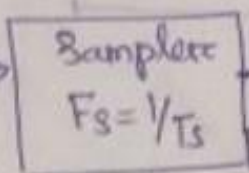 Sampler
Fs = 1/Ts